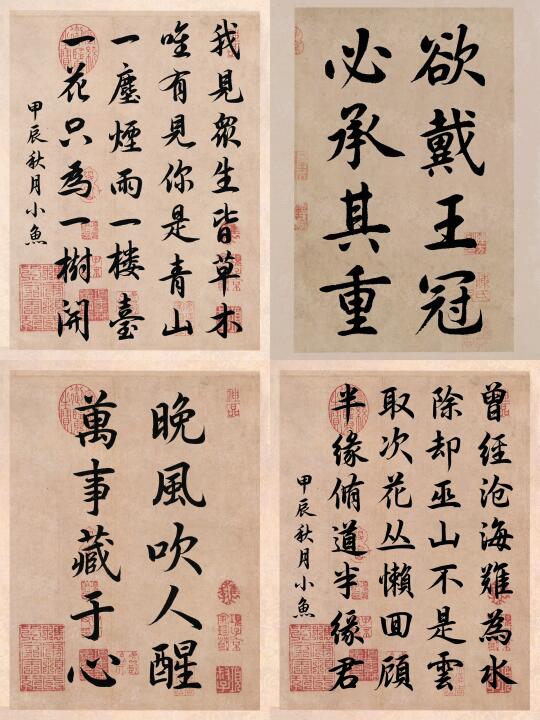 我見眾生皆草木
唯有見你是青山
一塵煙雨一樓臺
一花只為一樹開
甲辰秋月小魚
欲戴王冠
必承其重
晚風吹人醒
萬事藏于心
曾經沧海難為水
除却巫山不是雲
取次花丛懶回顧
半緣脩道半緣君
甲辰秋月小魚